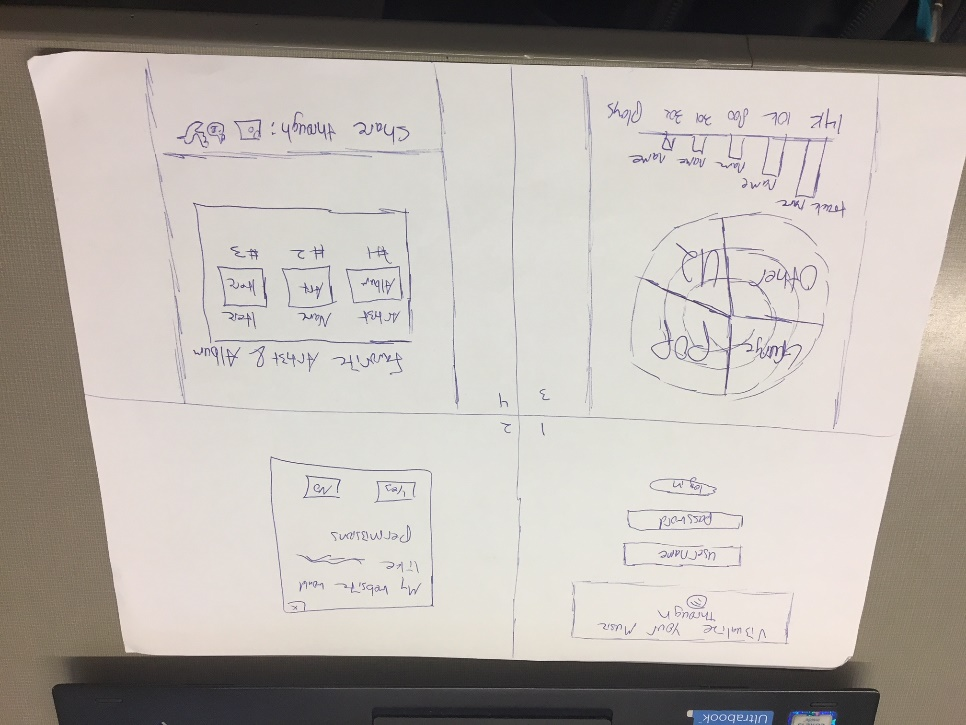 Visualize Your Music
Through
username
password
login
1
x
My website would
like
permissions
Yes No
2
3
Grunge POP
Other U2
track name
name
name name name
14K 10K 800 302 plays
4
Favorite Artist & Album
Artist Name Here
Album Art Here
#1 #2 #3
Share through:
Ultrabook